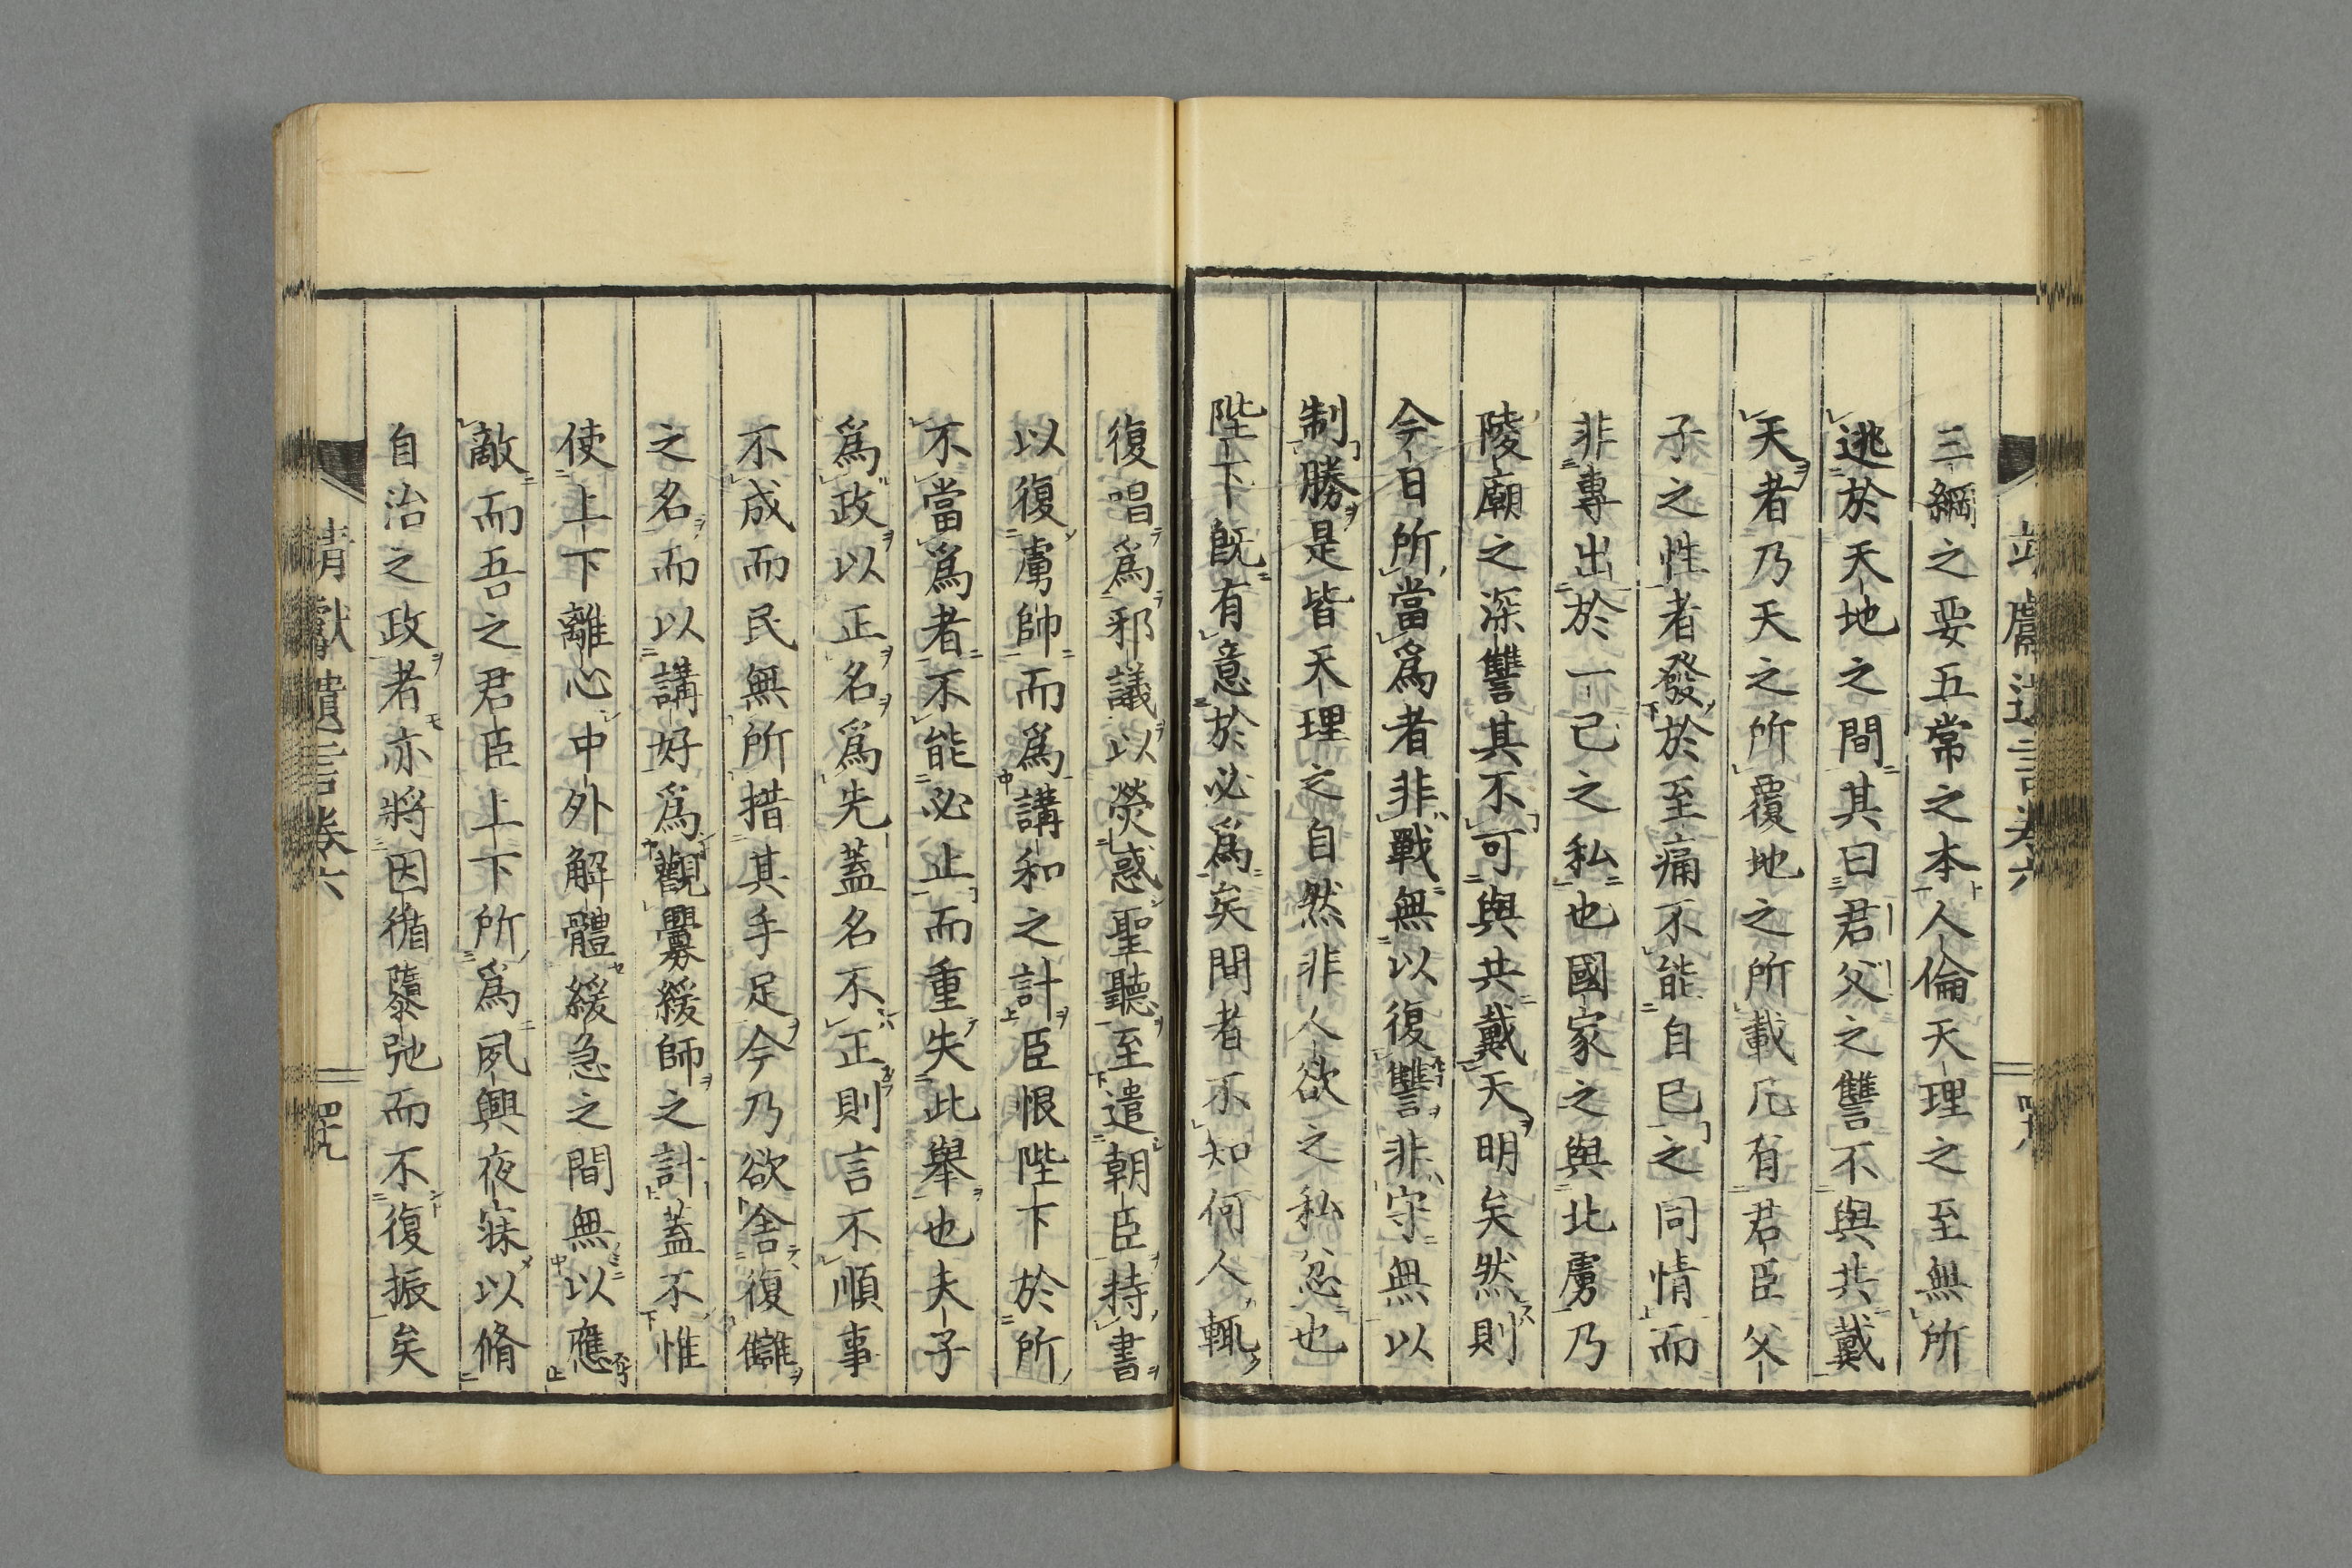 靖獻遺言卷六
三綱之要五常之本人倫天理之至無所
逃於天地之間其曰君父之讐不與共戴
天者乃天之所覆地之所載凡有君臣父
子之性者發於至痛不能自已之同情而
非專出於一己之私也國家之與北虜乃
陵廟之深讐其不可與共戴天明矣然則
今日所當爲者非戰無以復讐非守無以
制勝是皆天理之自然非人欲之私忿也
陛下既有意於必爲矣間者不知何人輒
復唱爲邪議以熒惑聖聽至遣朝臣持書
以復虜帥而爲講和之計臣恨陛下於所
不當爲者不能必止而重失此舉也夫子
爲政以正名爲先蓋名不正則言不順事
不成而民無所措其手足今乃欲舍復讎
之名而以講好爲觀釁緩師之計蓋不惟
使上下離心中外解體緩急之間無以應
敵而吾之君臣上下所爲夙興夜寐以脩
自治之政者亦將因循隳弛而不復振矣
靖獻遺言卷六